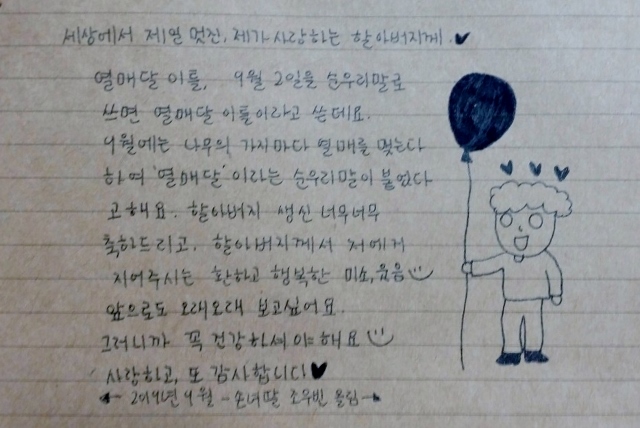 세상에서 제일 멋진, 제가 사랑하는 할아버지께.♥
열매달 이틀, 9월 2일을 순우리말로
쓰면 열매달 이틀이라고 쓴데요.
9월에는 나무의 가지마다 열매를 맺는다
하여 '열매달'이라는 순우리말이 붙었다
고해요. 할아버지 생신 너무너무
축하드리고, 할아버지께서 저에게
지어주시는 환하고 행복한 미소, 웃음
앞으로도 오래오래 보고싶어요.
그러니까 꼭 건강하셔야해요
사랑하고, 또 감사합니다♥
2019년 9월 - 손녀딸 조우빈 올림 -